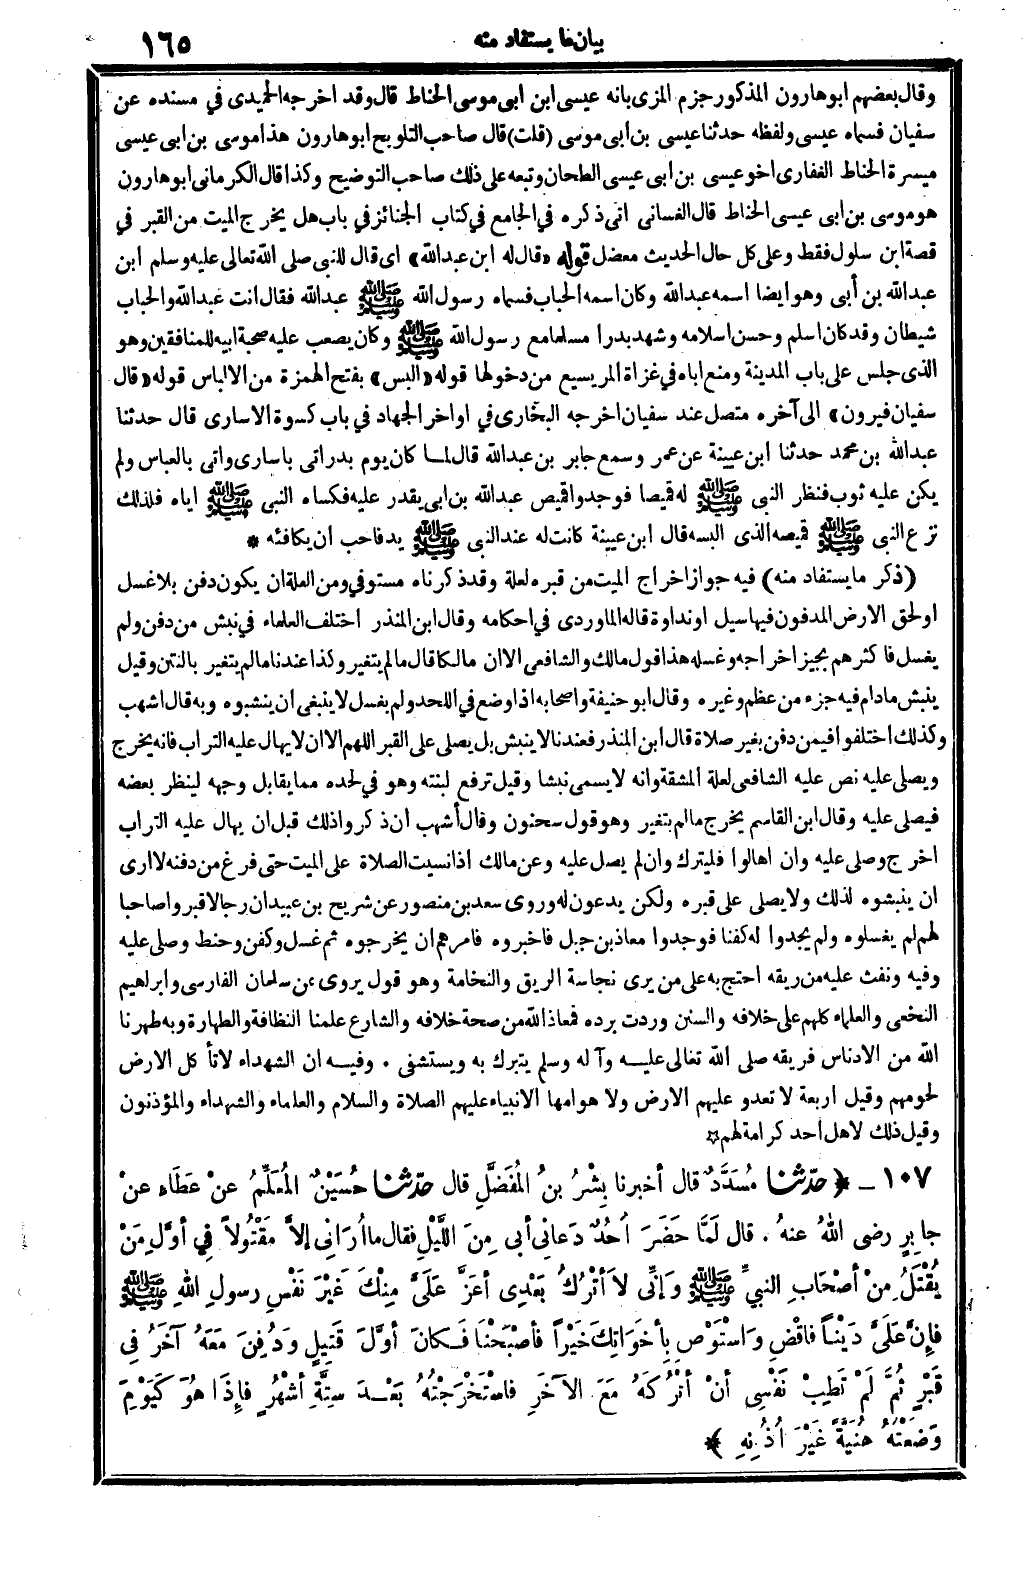 بيان ما يستفاد منه ١٦٥
وقال بعضهم ابو هارون المذكور جزم المزى بانه عيسى ابن ابى موسى الحناط قال وقد اخرجه الحميدى في مسنده عن
سفيان فسماه عيسى ولفظه حدثنا عيسى بن أبى موسى (قلت) قال صاحب التلويح ابو هارون هذا موسى بن ابى عيسى
ميسرة الحناط الغفارى اخو عيسى بن ابى عيسى الطحان وتبعه على ذلك صاحب التوضيح وكذا قال الكرمانى ابو هارون
هو موسى بن ابى عيسى الحناط قال الغسانى اتى ذكره في الجامع في كتاب الجنائز في باب هل يخرج الميت من القبر في
قصة ابن سلول فقط وعلى كل حال الحديث معضل قوله «قال له ابن عبدالله» اى قال للنبى صلى الله تعالى عليه وسلم ابن
عبد الله بن أبى وهو ايضا اسمه عبد الله وكان اسمه الحباب فسماه رسول الله ﷺ عبدالله فقال انت عبدالله والحباب
شيطان وقد كان اسلم وحسن اسلامه وشهد بدرا مسلما مع رسول الله ﷺ وكان يصعب عليه صحبة ابيه للمنافقين وهو
الذى جلس على باب المدينة ومنع اباه في غزاة المريسيع من دخولها قوله «البس» بفتح الهمزة من الالباس قوله «قال
سفيان فيرون» الى آخره متصل عند سفيان اخرجه البخارى في اواخر الجهاد في باب كسوة الاسارى قال حدثنا
عبدالله بن محمد حدثنا ابن عيينة عن عمر وسمع جابر بن عبدالله قال لما كان يوم بدر اتى باسارى واتى بالعباس ولم
يكن عليه ثوب فنظر النبى ﷺ له قميصا فوجدوا قميص عبدالله بن ابى يقدر عليه فكساه النبى ﷺ اياه فلذلك
نزع النبى ﷺ قميصه الذى البسه قال ابن عيينة كانت له عند النبى ﷺ يد فاحب أن يكافئه *
(ذكر ما يستفاد منه) فيه جواز اخراج الميت من قبره لعلة وقد ذكرناه مستوفى ومن العلة ان يكون دفن بلا غسل
او لحق الارض المدفون فيها سيل او نداوة قاله الماوردى في احكامه وقال ابن المنذر اختلف العلماء في نبش من دفن ولم
يغسل فاكثرهم يجيز اخراجه وغسله هذا قول مالك والشافعى الا ان مالكا قال ما لم يتغير وكذا عندنا ما لم يتغير بالنتن وقيل
ينبش مادام فيه جزء من عظم وغيره وقال ابو حنيفة واصحابه اذا وضع في اللحد ولم يغسل لا ينبغى ان ينشبوه وبه قال اشهب
وكذلك اختلفوا فيمن دفن بغير صلاة قال ابن المنذر فعندنا لا ينبش بل يصلى على القبر اللهم الا ان لا يهال عليه التراب فانه يخرج
ويصلى عليه نص عليه الشافعى لعلة المشقة وانه لا يسمى نبشا وقيل ترفع لبنته وهو في لحده مما يقابل وجهه لينظر بعضه
فيصلى عليه وقال ابن القاسم يخرج ما لم يتغير وهو قول سحنون وقال أشهب ان ذكروا ذلك قبل ان يهال عليه التراب
اخرج وصلى عليه وان اهالوا فليترك وان لم يصل عليه وعن مالك اذا نسيت الصلاة على الميت حتى فرغ من دفنه لا ارى
ان ينبشوه لذلك ولا يصلى على قبره ولكن يدعون له وروى سعد بن منصور عن شريح بن عبيد ان رجالا قبروا صاحبا
لهم لم يغسلوه ولم يجدوا له كفنا فوجدوا معاذ بن جبل فاخبروه فامرهم ان يخرجوه ثم غسل وكفن وحنط وصلى عليه
وفيه ونفث عليه من ريقه احتج به على من يرى نجاسة الريق والنخامة وهو قول يروى عن سلمان الفارسى وابراهيم
النخعى والعلماء كلهم على خلافه والسنن وردت برده فمعاذ الله من صحة خلافه والشارع علمنا النظافة والطهارة وبه طهرنا
الله من الادناس فريقه صلى الله تعالى عليه وآله وسلم يتبرك به ويستشفى . وفيه ان الشهداء لا تأكل الارض
لحومهم وقيل اربعة لا تعدو عليهم الارض ولا هوامها الانبياء عليهم الصلاة والسلام والعلماء والشهداء والمؤذنون
وقيل ذلك لاهل أحد كرامة لهم☆
١٠٧ ـ ﴿حدّثنا مُسَدَّدٌ قال أخبرنا بِشْرُ بنُ المُفَضَّلِ قال حدّثنا حُسَيْنٌ المُعَلِّمُ عنْ عَطَاءٍ عنْ
جابِرٍ رضى اللهُ عنهُ . قال لَمَّا حَضَرَ أُحُدٌ دَعانِى أبى مِنَ اللَّيْلِ فقال ما أُرَانِى إلاَّ مَقْتُولاً فِي أوَّلِ مَنْ
يُقْتَلُ مِنْ أصْحَابِ النبيِّ ﷺ وَإنِّى لاَ أتْرُكُ بَعْدِى أعَزَّ عَلَىَّ مِنْكَ غَيْرَ نَفْسِ رسولِ اللهِ ﷺ
فإنَّ عَلَىَّ دَيْناً فاقْضِ وَاسْتَوْصِ بِأخَوَاتِكَ خَيْراً فأصْبَحْنا فَكانَ أوَّلَ قَتِيلٍ وَدُفِنَ مَعَهُ آخَرُ فِى
قَبْرٍ ثُمَّ لَمْ تَطِبْ نَفْسِى أنْ أتْرُكَهُ مَعَ الآخَرِ فاسْتَخْرَجْتُهُ بَعْدَ سِتَّةِ أشْهُرٍ فإذَا هُوَ كَيَوْمِ
وَضَعْتُهُ هُنَيَّةً غَيْرَ أُذُنِهِ ﴾ *